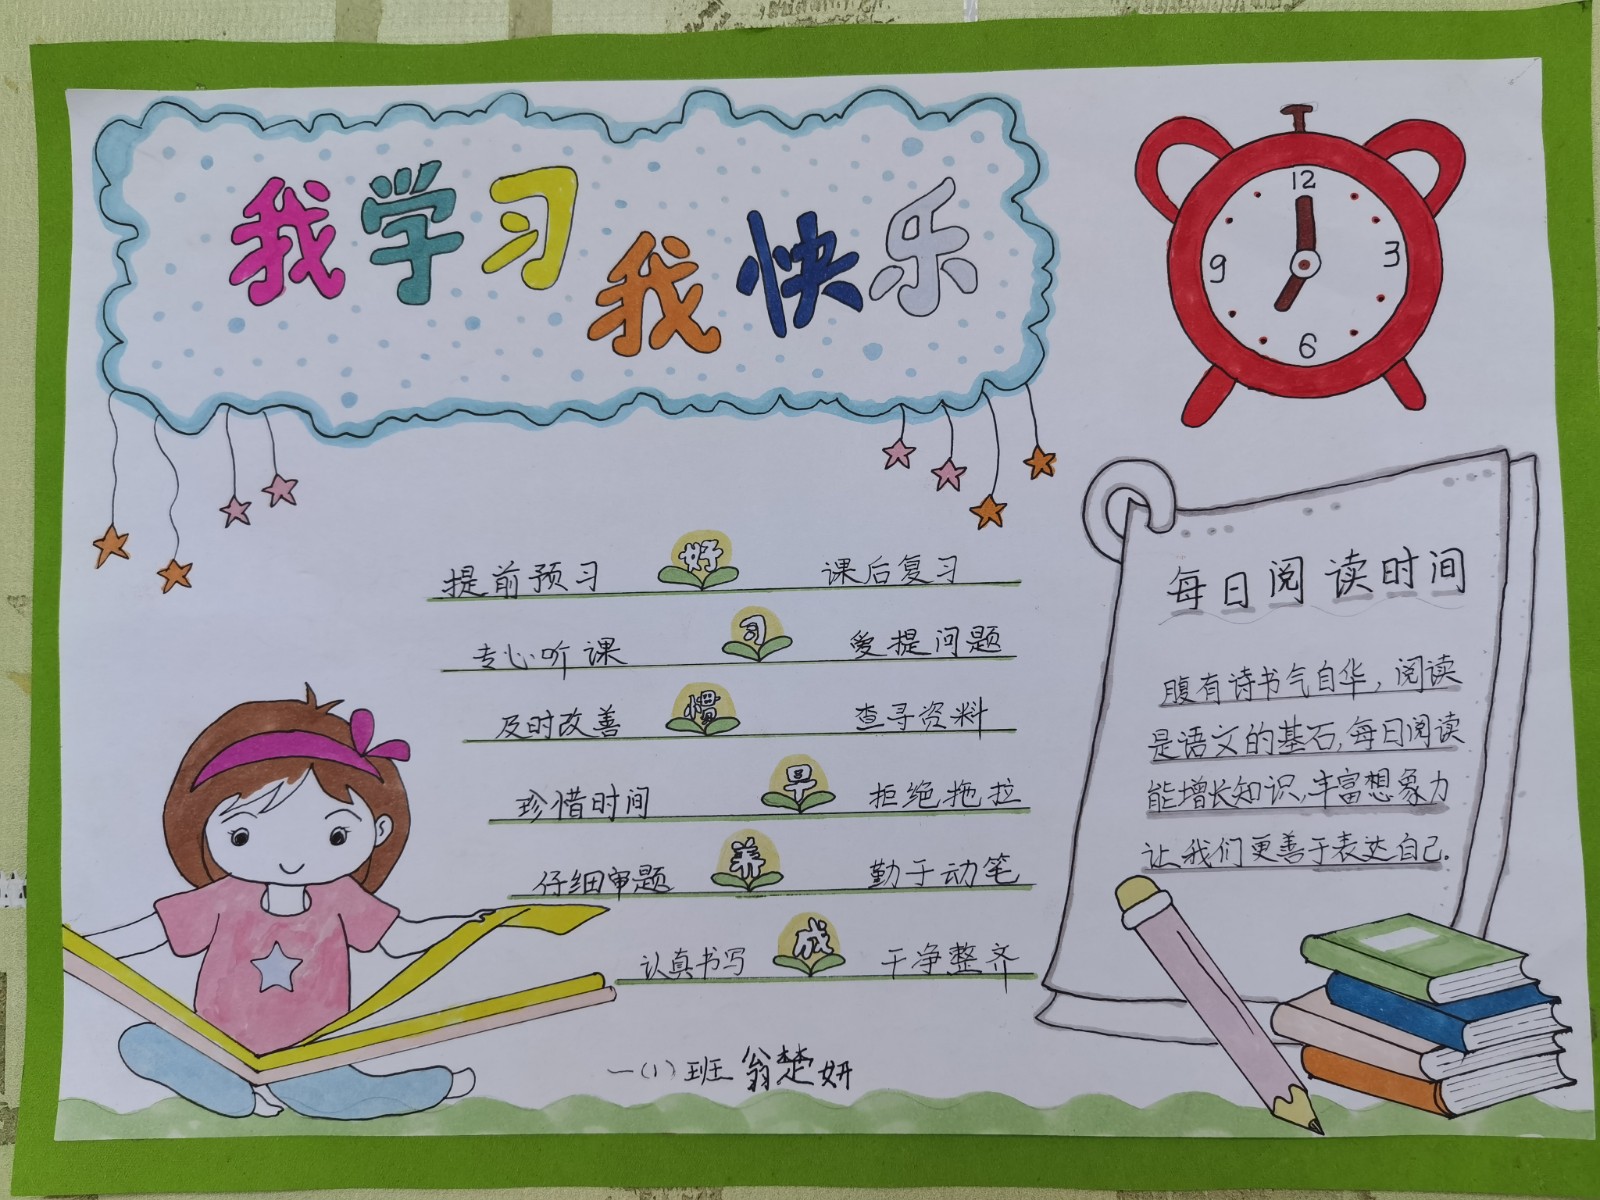 我学习我快乐
12
9 3
6
提前预习 好 课后复习
专心听课 习 爱提问题
及时改善 惯 查寻资料
珍惜时间 早 拒绝拖拉
仔细审题 养 勤于动笔
认真书写 成 干净整齐
一(1)班 翁楚妍
每日阅读时间
腹有诗书气自华，阅读
是语文的基石，每日阅读
能增长知识，丰富想象力
让我们更善于表达自己.